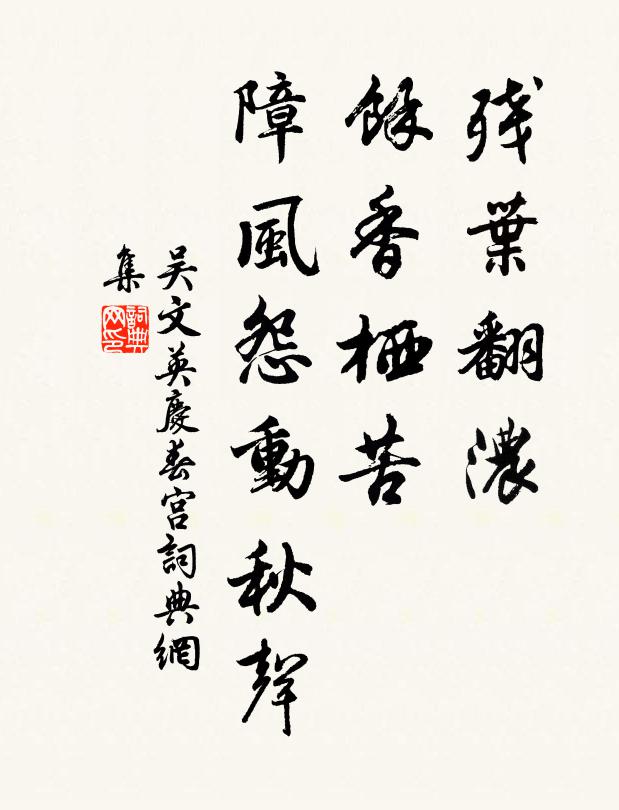 殘葉翻濃
餘香栖苦
障風怨動秋聲
吳文英慶春宮詞典網
集
詞典网印